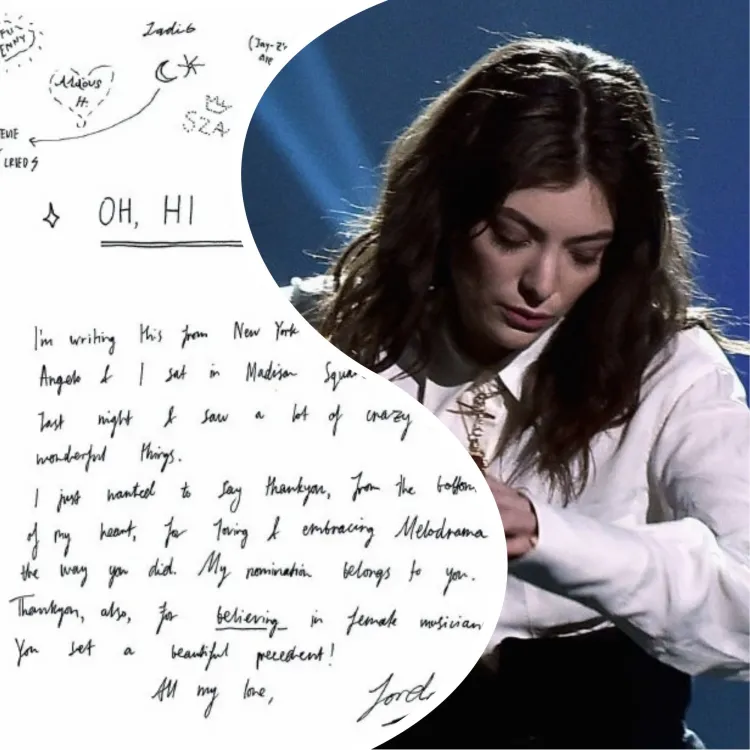 ENNY
Aldous
H.
(Jay-Z's
SZA
CRIED
OH, HI
I'm writing this from New York
Angelo & I sat in Madison Squa
Last night & saw a lot of crazy
wonderful things.
I just wanted to say thankyou, from the bottom
of my heart, for loving & embracing Melodrama
the way you did. My nomination belongs to you.
Thankyou, also, for believing in female musician
You set a beautiful precedent!
All my love,
Lord